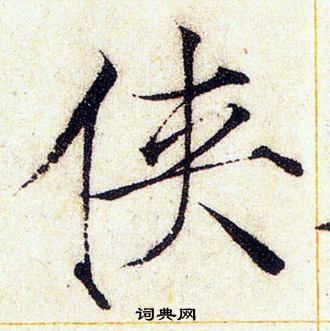 侠
词典网